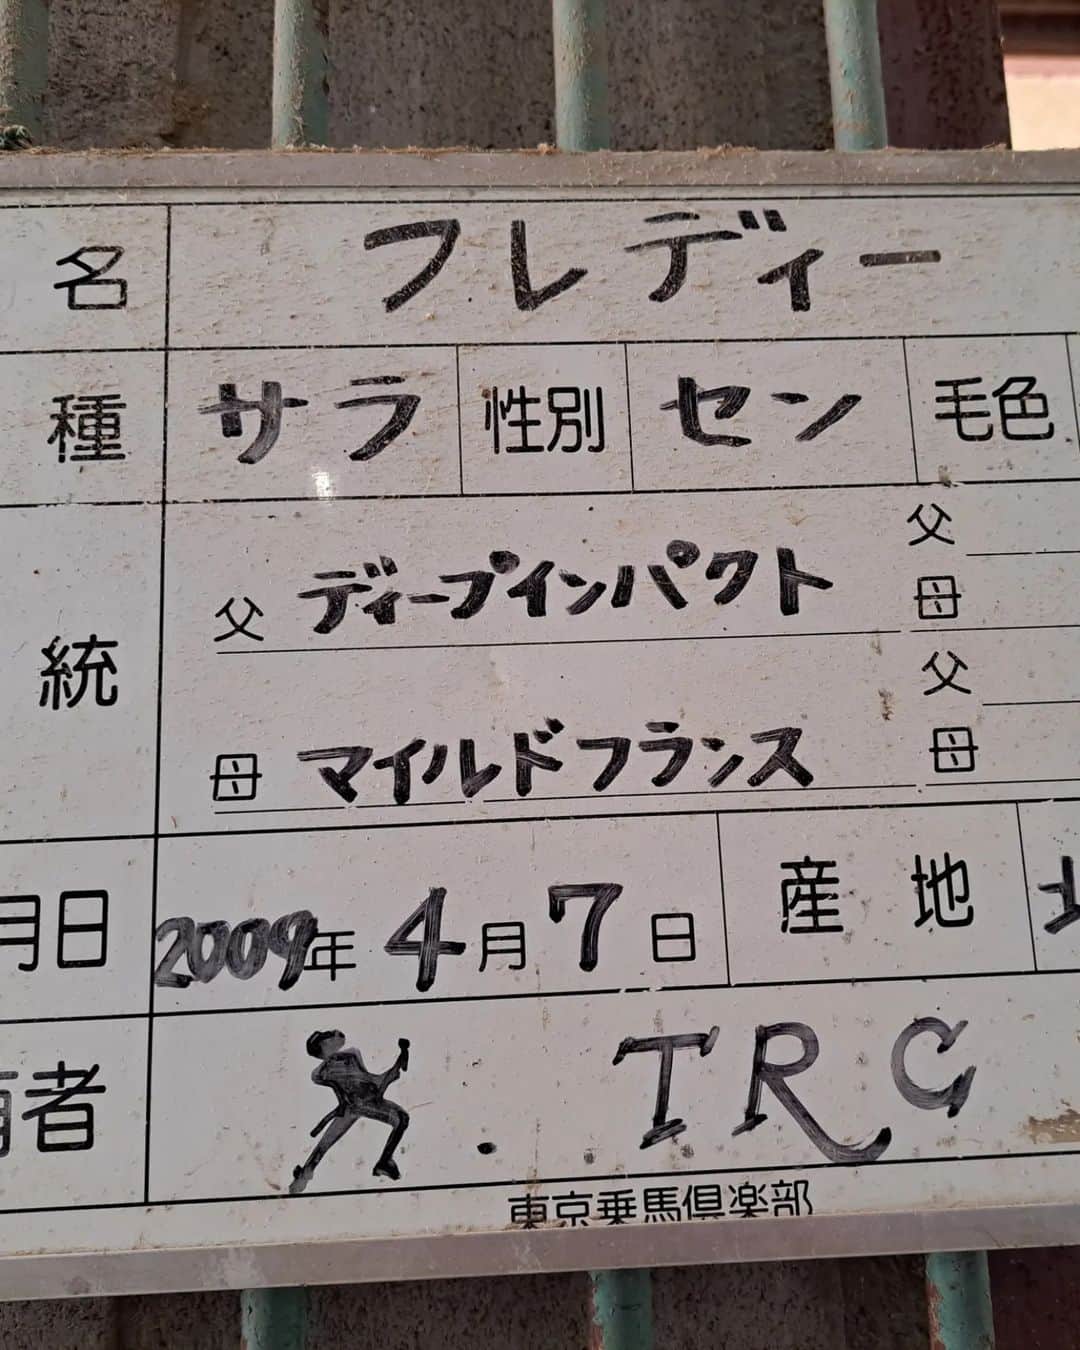 名 フレディー
種 サラ 性別 セン 毛色
父
父 ディープインパクト 母
統
父
母 マイルドフランス 母
月日 2009年 4月 7日 産地 北
有者 . TRC
東京乗馬倶楽部